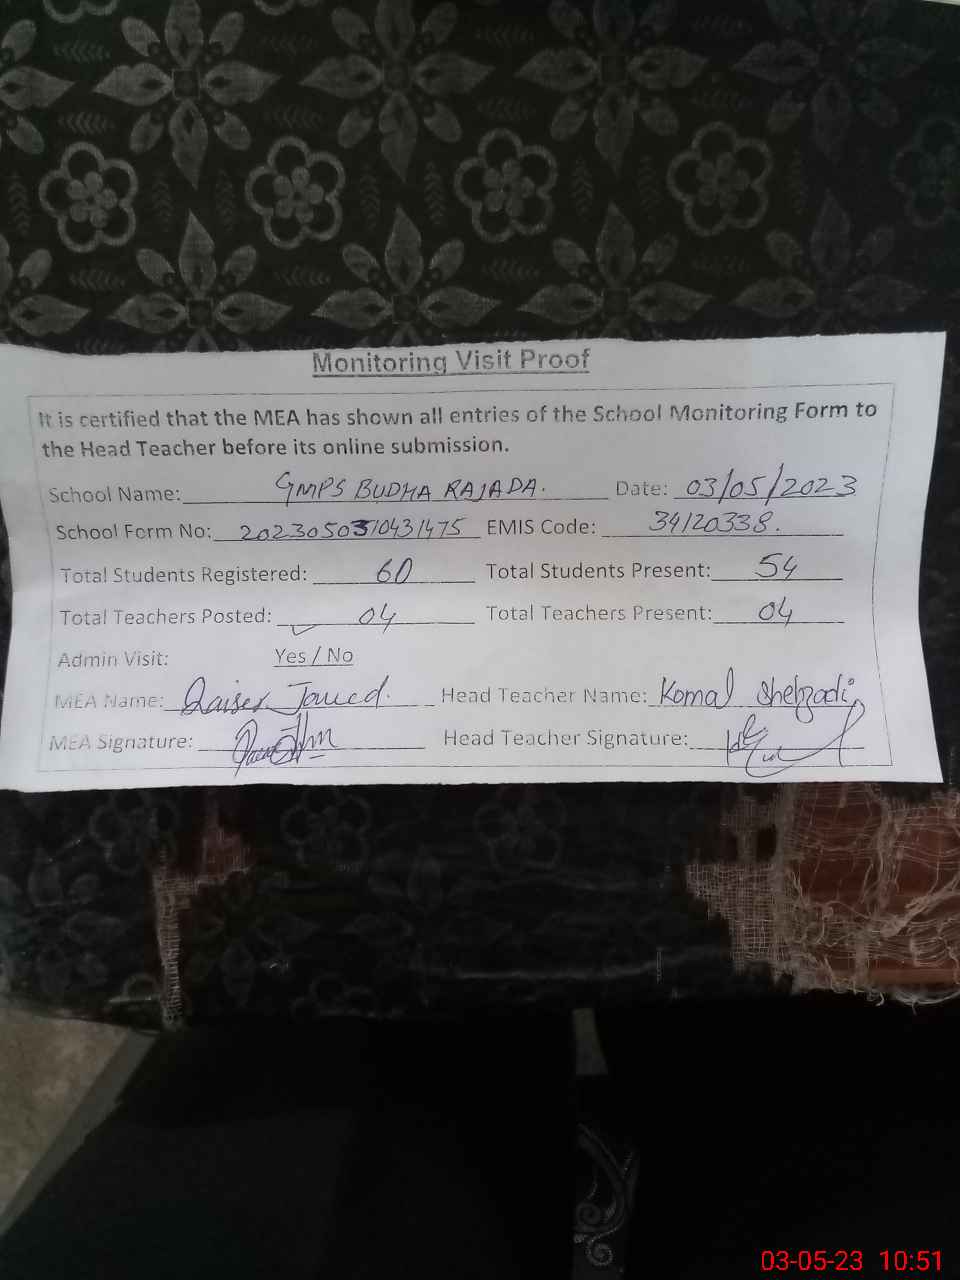 Monitoring Visit Proof
It is certified that the MEA has shown all entries of the School Monitoring Form to
the Head Teacher before its online submission.
School Name: GMPS BUDHA RAJADA. Date: 03/05/2023
School Form No: 2023050310431475 EMIS Code: 34120338.
Total Students Registered: 60 Total Students Present: 54
Total Teachers Posted: 04 Total Teachers Present: 04
Admin Visit: Yes / No
MEA Name: Qaiser Javed. Head Teacher Name: Komal Shehzadi
MEA Signature: Head Teacher Signature:
03-05-23 10:51